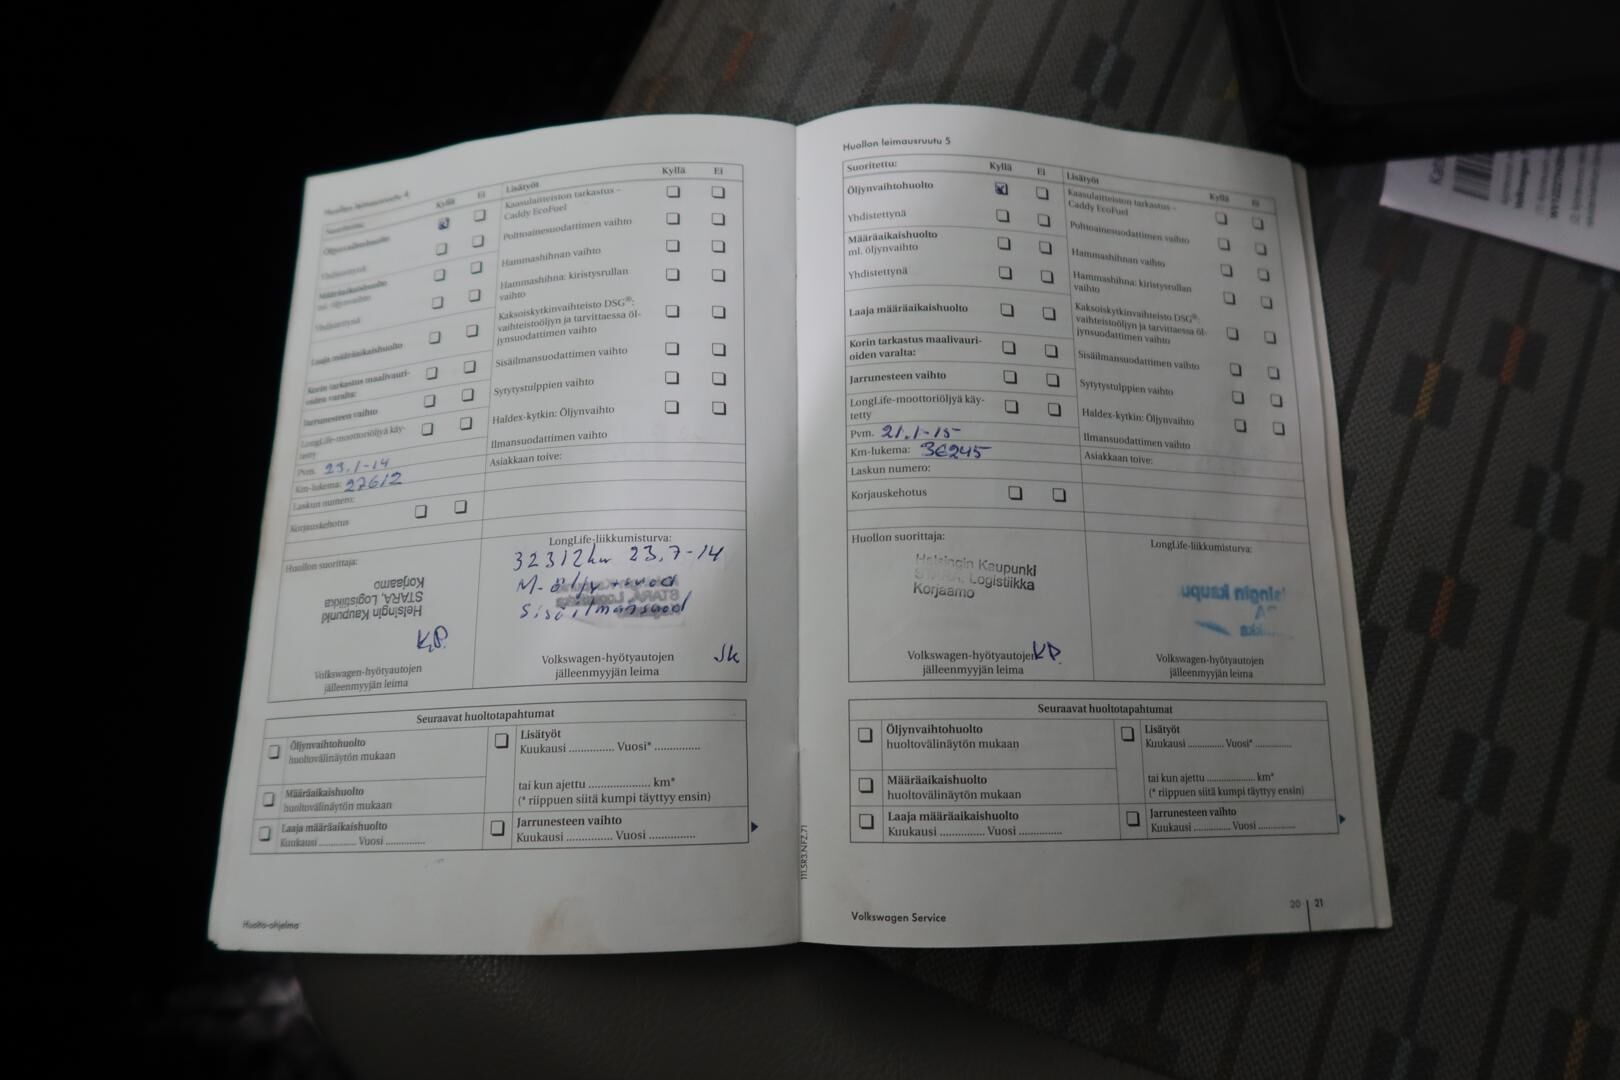 Huollon leimausruutu 4
Suoritettu:
Kyllä
Ei
Lisätyöt
Kyllä
Ei
Öljynvaihtohuolto
Yhdistettynä
Määräaikaishuolto
ml. öljynvaihto
Yhdistettynä
Laaja määräaikaishuolto
Korin tarkastus maalivauri-
oiden varalta:
Jarrunesteen vaihto
LongLife-moottoriöljyä käy-
tetty
Pvm. 23.1-14
Km-lukema: 27612
Laskun numero:
Korjauskehotus
Kaasulaitteiston tarkastus –
Caddy EcoFuel
Polttoainesuodattimen vaihto
Hammashihnan vaihto
Hammashihna: kiristysrullan
vaihto
Kaksoiskytkinvaihteisto DSG®:
vaihteistoöljyn ja tarvittaessa öl-
jynsuodattimen vaihto
Sisäilmansuodattimen vaihto
Sytytystulppien vaihto
Haldex-kytkin: Öljynvaihto
Ilmansuodattimen vaihto
Asiakkaan toive:
Huollon suorittaja:
Helsingin Kaupunki
STARA, Logistiikka
Korjaamo
KP.
Volkswagen-hyötyautojen
jälleenmyyjän leima
LongLife-liikkumisturva:
32312km 23.7-14
M-öljy + suod
Sisäilmansuod
JK
Volkswagen-hyötyautojen
jälleenmyyjän leima
Seuraavat huoltotapahtumat
Öljynvaihtohuolto
huoltovälinäytön mukaan
Määräaikaishuolto
huoltovälinäytön mukaan
Laaja määräaikaishuolto
Kuukausi ............ Vuosi ............
Lisätyöt
Kuukausi .............. Vuosi* ..............
tai kun ajettu ................... km*
(* riippuen siitä kumpi täyttyy ensin)
Jarrunesteen vaihto
Kuukausi .............. Vuosi ..............
Huolto-ohjelma
111.5R3.NFZ.71
Huollon leimausruutu 5
Suoritettu:
Kyllä
Ei
Lisätyöt
Kyllä
Ei
Öljynvaihtohuolto
Yhdistettynä
Määräaikaishuolto
ml. öljynvaihto
Yhdistettynä
Laaja määräaikaishuolto
Korin tarkastus maalivauri-
oiden varalta:
Jarrunesteen vaihto
LongLife-moottoriöljyä käy-
tetty
Pvm. 21.1-15
Km-lukema: 36245
Laskun numero:
Korjauskehotus
Kaasulaitteiston tarkastus –
Caddy EcoFuel
Polttoainesuodattimen vaihto
Hammashihnan vaihto
Hammashihna: kiristysrullan
vaihto
Kaksoiskytkinvaihteisto DSG®:
vaihteistoöljyn ja tarvittaessa öl-
jynsuodattimen vaihto
Sisäilmansuodattimen vaihto
Sytytystulppien vaihto
Haldex-kytkin: Öljynvaihto
Ilmansuodattimen vaihto
Asiakkaan toive:
Huollon suorittaja:
Helsingin Kaupunki
STARA, Logistiikka
Korjaamo
KP.
Volkswagen-hyötyautojen
jälleenmyyjän leima
LongLife-liikkumisturva:
Volkswagen-hyötyautojen
jälleenmyyjän leima
Seuraavat huoltotapahtumat
Öljynvaihtohuolto
huoltovälinäytön mukaan
Määräaikaishuolto
huoltovälinäytön mukaan
Laaja määräaikaishuolto
Kuukausi .............. Vuosi ..............
Lisätyöt
Kuukausi ........... Vuosi* ...........
tai kun ajettu ................... km*
(* riippuen siitä kumpi täyttyy ensin)
Jarrunesteen vaihto
Kuukausi ........... Vuosi ...........
Volkswagen Service
20 | 21